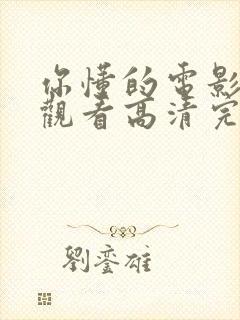 你懂的電影
觀看高清完
劉鑾雄